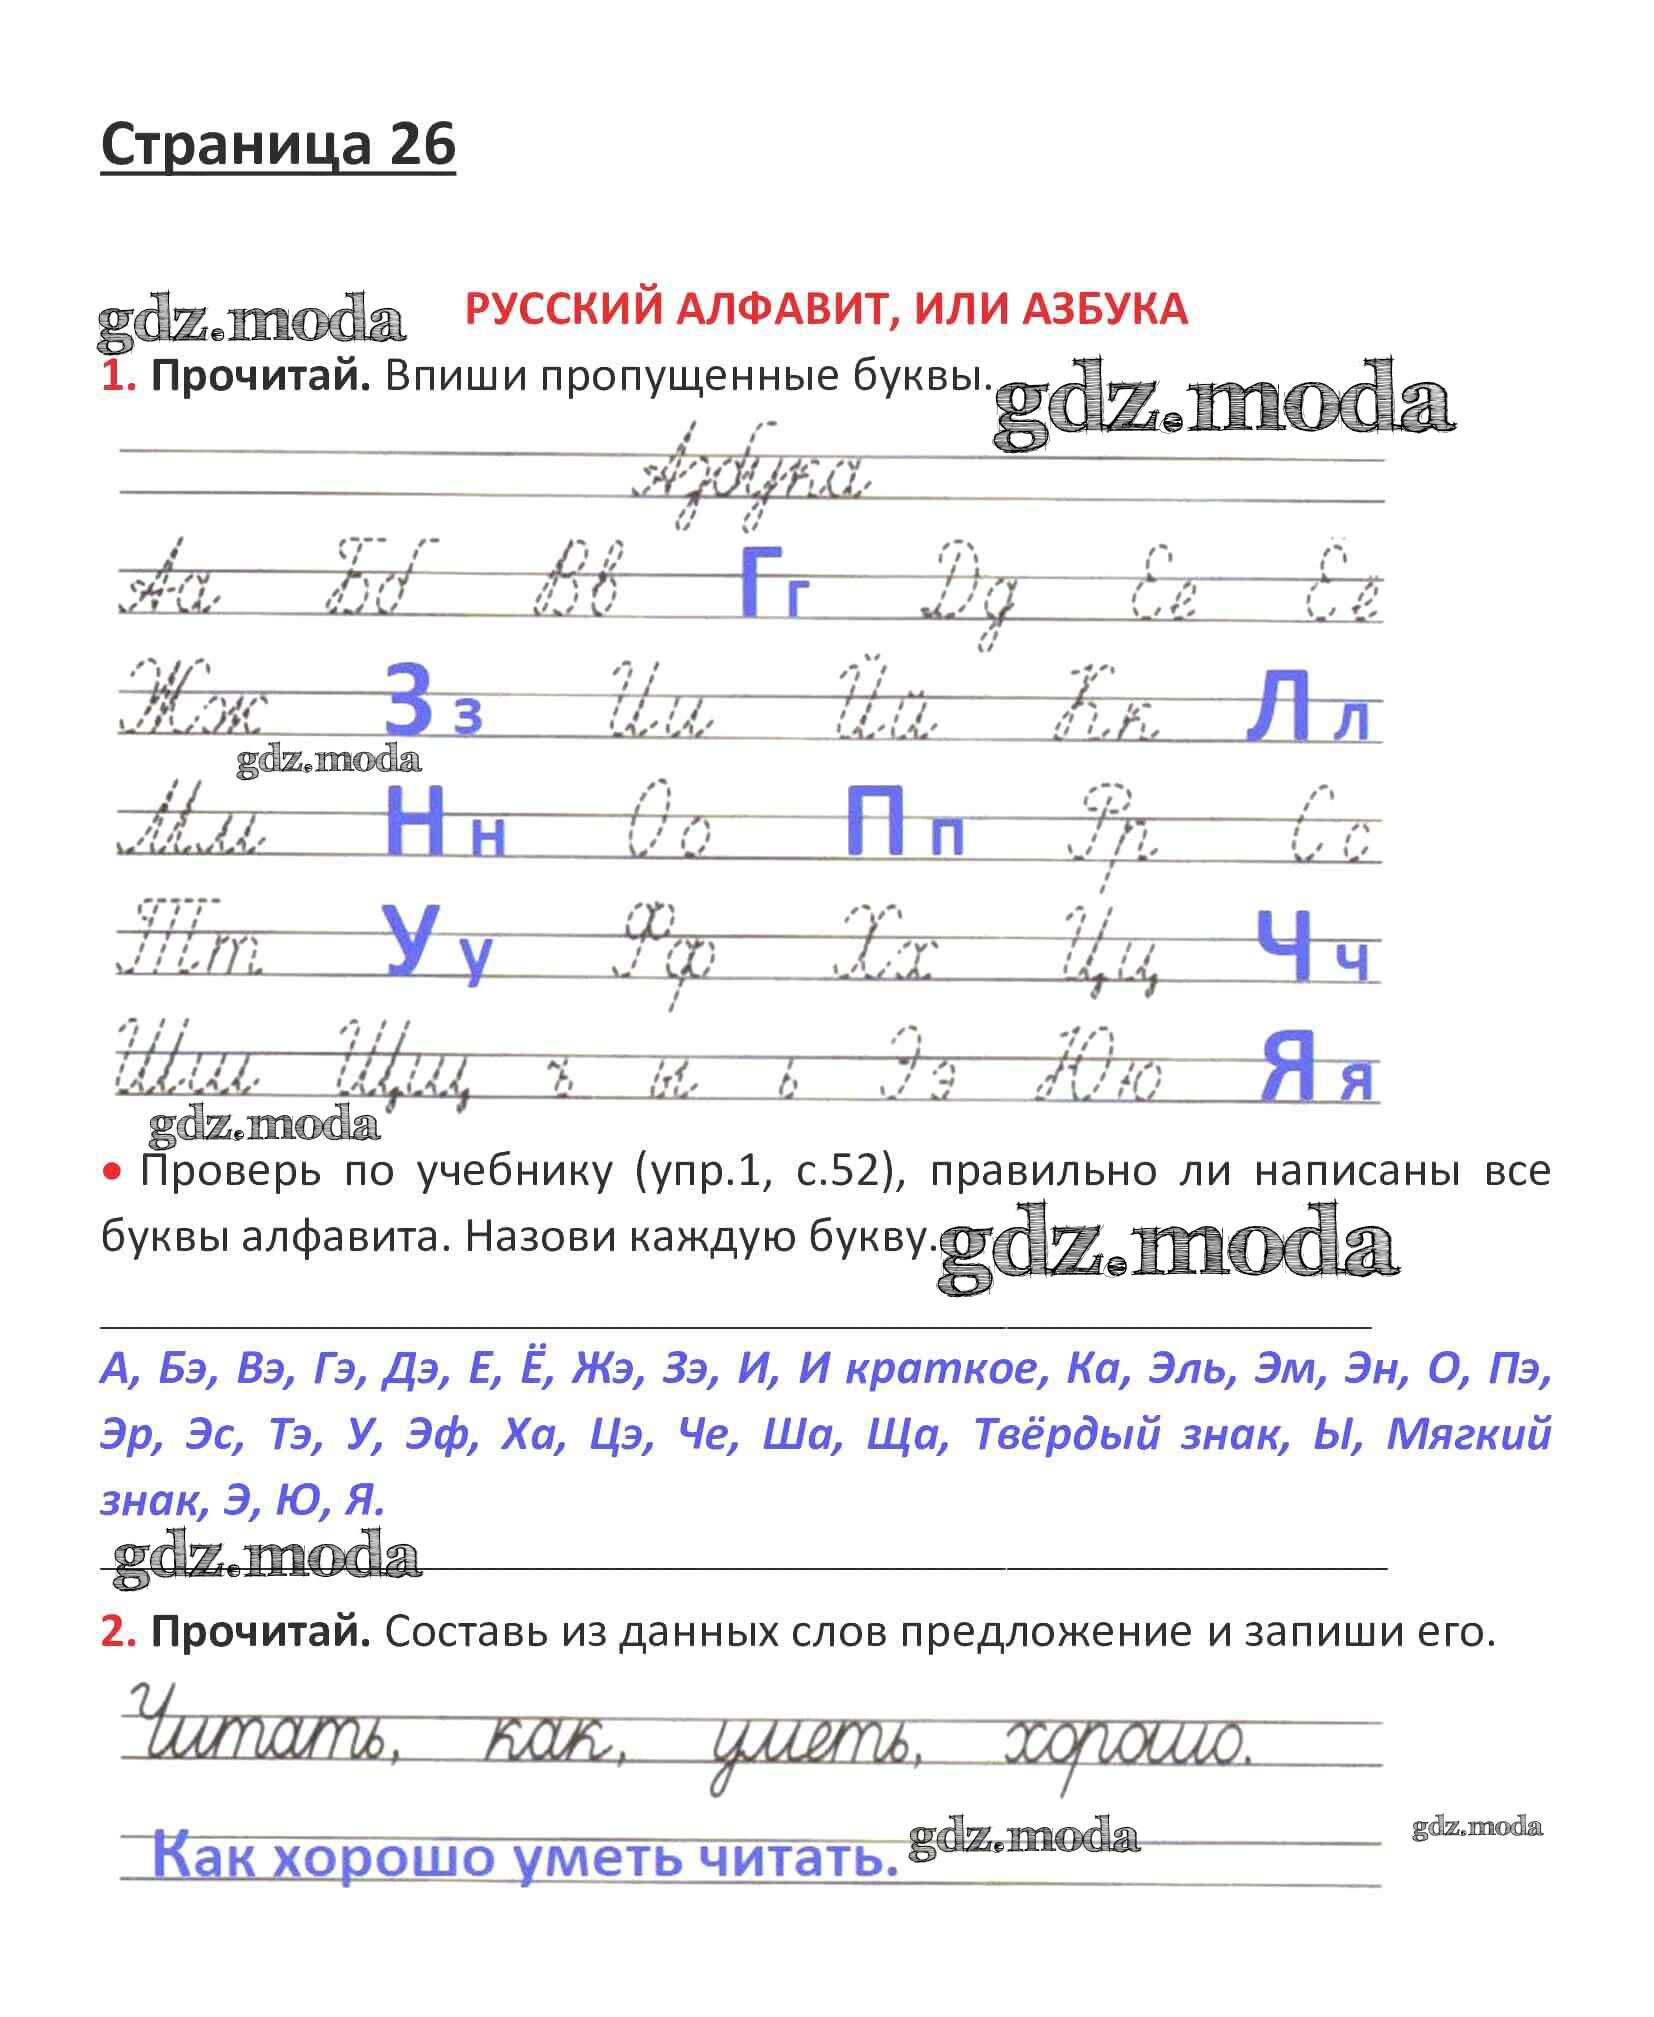 Страница 26
РУССКИЙ АЛФАВИТ, ИЛИ АЗБУКА
gdz.moda
1. Прочитай. Впиши пропущенные буквы.
gdz.moda
Азбука
Аа Бб Вв Гг Дд Ее Ёё
Жж Зз Ии Йй Кк Лл
gdz.moda
Мм Нн Оо Пп Рр Сс
Тт Уу Фф Хх Цц Чч
Шш Щщ ъ ы ь Ээ Юю Яя
gdz.moda
• Проверь по учебнику (упр.1, с.52), правильно ли написаны все
буквы алфавита. Назови каждую букву.
gdz.moda
А, Бэ, Вэ, Гэ, Дэ, Е, Ё, Жэ, Зэ, И, И краткое, Ка, Эль, Эм, Эн, О, Пэ,
Эр, Эс, Тэ, У, Эф, Ха, Цэ, Че, Ша, Ща, Твёрдый знак, Ы, Мягкий
знак, Э, Ю, Я.
gdz.moda
2. Прочитай. Составь из данных слов предложение и запиши его.
Читать, как, уметь, хорошо.
Как хорошо уметь читать.
gdz.moda
gdz.moda